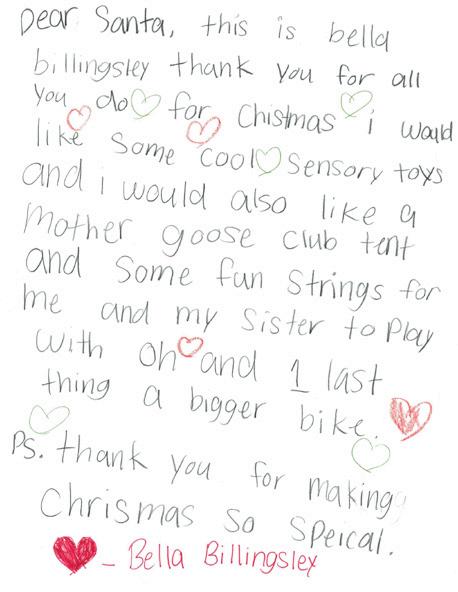 Dear Santa, this is bella
billingsley thank you for all
you do for Chistmas i would
like some cool sensory toys
and i would also like a
Mother goose club tent
and some fun strings for
me and my sister to play
with oh and 1 last
thing a bigger bike.
Ps. thank you for making
Chrismas so speical.
- Bella Billingsley